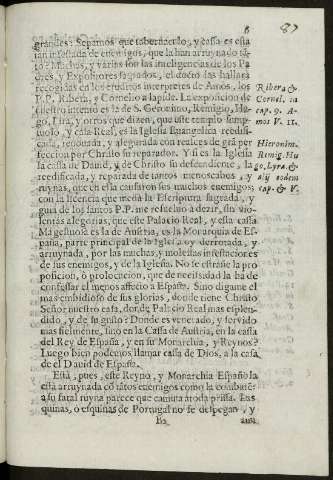 6 87
grandes: Sepamos que tabernaculo, y casa es esta
tan infestada de enemigos, que la han arruynado tã-
to? Muchas, y varias son las inteligencias de los Pa
dres, y Expositores sagrados, el docto las hallará
recogidas en los eruditos interpretes de Amos, los
P.P. Ribera, y Cornelio a lapide. La exposicion de
nuestro intento es la de S. Geronimo, Remigio, Hu-
go, Lira, y otros que dizen, que este templo sump-
tuoso, y casa Real, es la Iglesia Euangelica reedifi-
cada, renouada, y assegurada con reales de grã per
feccion por Christo su reparador. Y si es la Iglesia
la casa de Dauid, y de Christo su defendiente, la
reedificada, y reparada de tantos menoscabos, y
ruynas, que en ella causaron sus muchos enemigos;
con la licencia que me da la Escriptura sagrada, y
guia de los santos P.P. me resueluo a dezir, sin vio-
lentas alegorias, que este Palacio Real, y esta casa
Magestuosa es la de Austria, es la Monarquia de Es-
paña, parte principal de la Iglesia oy derrotada, y
arruynada, por las muchas, y molestas infestaciones
de sus enemigos, y de la Iglesia. No se estrañe la pro
posicion, ò prolocucion, que de necesidad la hà de
confessar el menos affecto a España. Sino digame el
mas embidioso de sus glorias, donde tiene Christo
Señor nuestro casa, donde Palacio Real mas esplen-
dido, y de su gusto? Donde es venerado, y seruido
mas fielmente, sino en la Cassa de Austria, en la cassa
del Rey de España, y en su Monarchia, y Reynos?
Luego bien podemos llamar cassa de Dios, a la casa
de el Dauid de España.
Està, pues, este Reyno, y Monarchia Española
essa arruynada cõ tãtos enemigos como la combatẽ
a su fatal ruyna parece que camina a toda prissa. Las
quinas, o esquinas de Portugal no se despegan, y
aun
Ribera &
Cornel. in
cap. 9. A-
mos V. 11.
Hieronim.
Remig. Hu
go, Lyra, &
alij eodem
cap. & V.